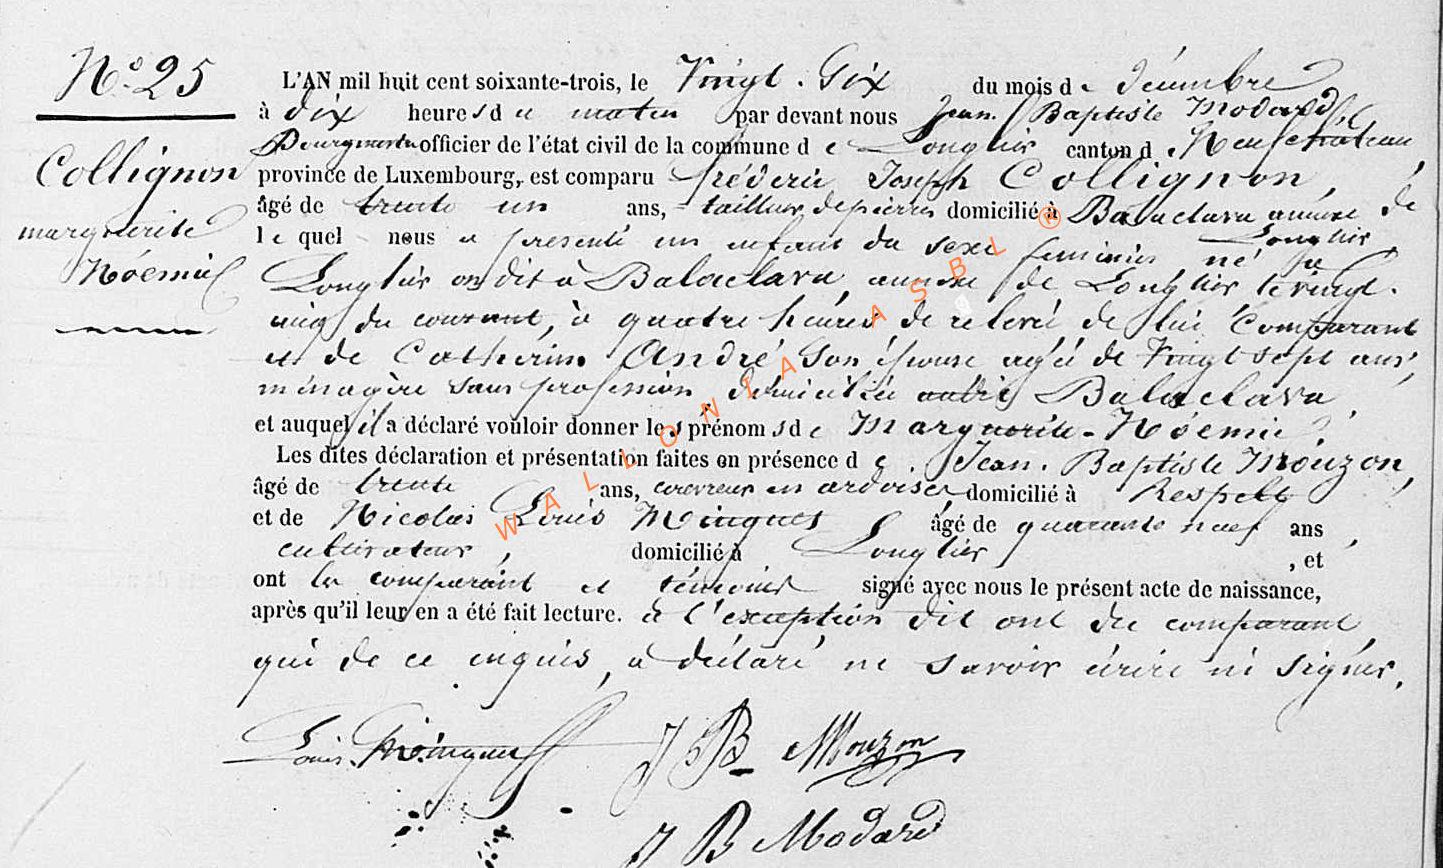 N° 25
Collignon
marguerite
Nóémie
L'AN mil huit cent soixante-trois, le Vingt. Six du mois de décembre
à dix heures du matin par devant nous Jean. Baptiste Modard,
Bourgmestre officier de l'état civil de la commune de Longlier canton de Neufchateau,
province de Luxembourg, est comparu fréderic Joseph Collignon,
âgé de trente un ans, tailleur de pierres domicilié à Balaclava annexe de
Longlier,
le quel nous a presenté un enfant du sexe feminin né à
Longlier on dit à Balaclava, annexe de Longlier le vingt.
cinq du courant, à quatre heures de relevée de lui Comparant
et de Catherine André son épouse agée de Vingt sept ans,
ménagère sans profession, domiciliée Balaclava,
et auquel il a déclaré vouloir donner les prénoms de Marguerite-Nóémie.
Les dites déclaration et présentation faites en présence de. Jean. Baptiste Mouzon,
âgé de trente ans, couvreur en ardoises domicilié à Respelt
et de Nicolas Louis Minguet âgé de quarante neuf ans,
cultivateur, domicilié à Longlier, et
ont le comparant et témoins signé avec nous le présent acte de naissance,
après qu'il leur en a été fait lecture. à l'exception dit ont du comparant,
qui de ce enquis, a déclaré ne savoir écrire ni signer.
Louis. J B Mouzon
J B Modard
WALLONIA ASBL ®